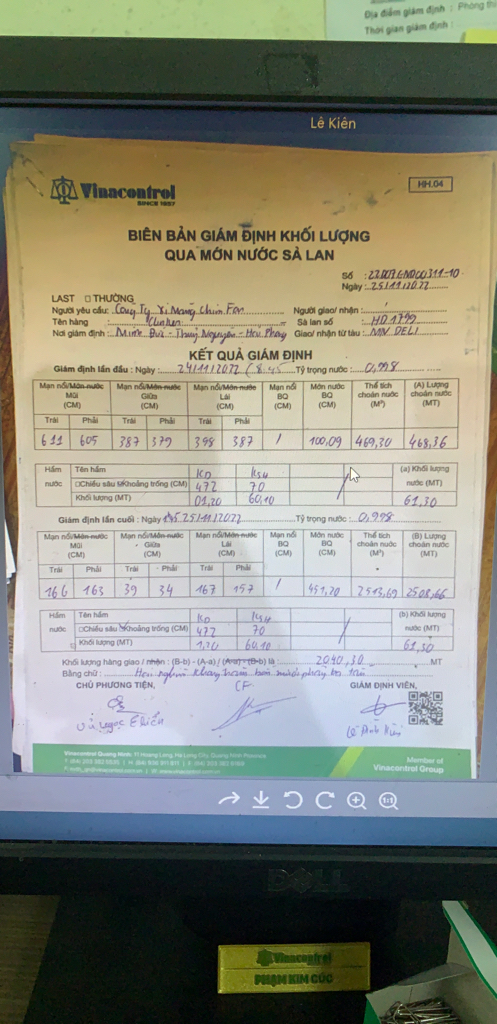 Địa điểm giám định : Phòng th
Thời gian giám định :
Lê Kiên
Vinacontrol
SINCE 1957
HH.04
BIÊN BẢN GIÁM ĐỊNH KHỐI LƯỢNG
QUA MỚN NƯỚC SÀ LAN
Số :
Ngày : 25/11/2022
LAST □ THƯỜNG
Người yêu cầu: Công Ty Xi Măng Chinfon Người giao/ nhận :
Tên hàng Clinker Sà lan số HD 1799
Nơi giám định : Minh Đức - Thuỷ Nguyên - Hải Phòng Giao/ nhận từ tàu : MV DELI
KẾT QUẢ GIÁM ĐỊNH
Giám định lần đầu : Ngày : 24/11/2022 Tỷ trọng nước : 0,998
Mạn nổi/Mớn nước Mũi (CM) Mạn nổi/Mớn nước Giữa (CM) Mạn nổi/Mớn nước Lái (CM) Mạn nổi BQ (CM) Mớn nước BQ (CM) Thể tích choán nước (M³) (A) Lượng choán nước (MT)
Trái Phải Trái Phải Trái Phải
611 605 387 379 398 387 / 100,09 469,30 468,36
Hầm nước Tên hầm KĐ KSH (a) Khối lượng nước (MT)
□Chiều sâu Khoảng trống (CM) 472 70
Khối lượng (MT) 01,20 60,10 61,30
Giám định lần cuối : Ngày 25/11/2022 Tỷ trọng nước : 0,998
Mạn nổi/Mớn nước Mũi (CM) Mạn nổi/Mớn nước Giữa (CM) Mạn nổi/Mớn nước Lái (CM) Mạn nổi BQ (CM) Mớn nước BQ (CM) Thể tích choán nước (M³) (B) Lượng choán nước (MT)
Trái Phải Trái Phải Trái Phải
166 163 39 34 167 157 / 451,20 2513,69 2508,66
Hầm nước Tên hầm KĐ KSH (b) Khối lượng nước (MT)
□Chiều sâu Khoảng trống (CM) 472 70
Khối lượng (MT) 1,20 60,10 61,30
Khối lượng hàng giao / nhận : (B-b) - (A-a) / (A-a) - (B-b) là 2040,30 MT
Bằng chữ : Hai nghìn không trăm bốn mươi phẩy ba
CHỦ PHƯƠNG TIỆN, CF GIÁM ĐỊNH VIÊN,
Vinacontrol Quảng Ninh: 11 Hoang Long, Ha Long City, Quang Ninh Province
Member of
Vinacontrol Group
1:1
DELL
Vinacontrol
PHẠM KIM CÚC